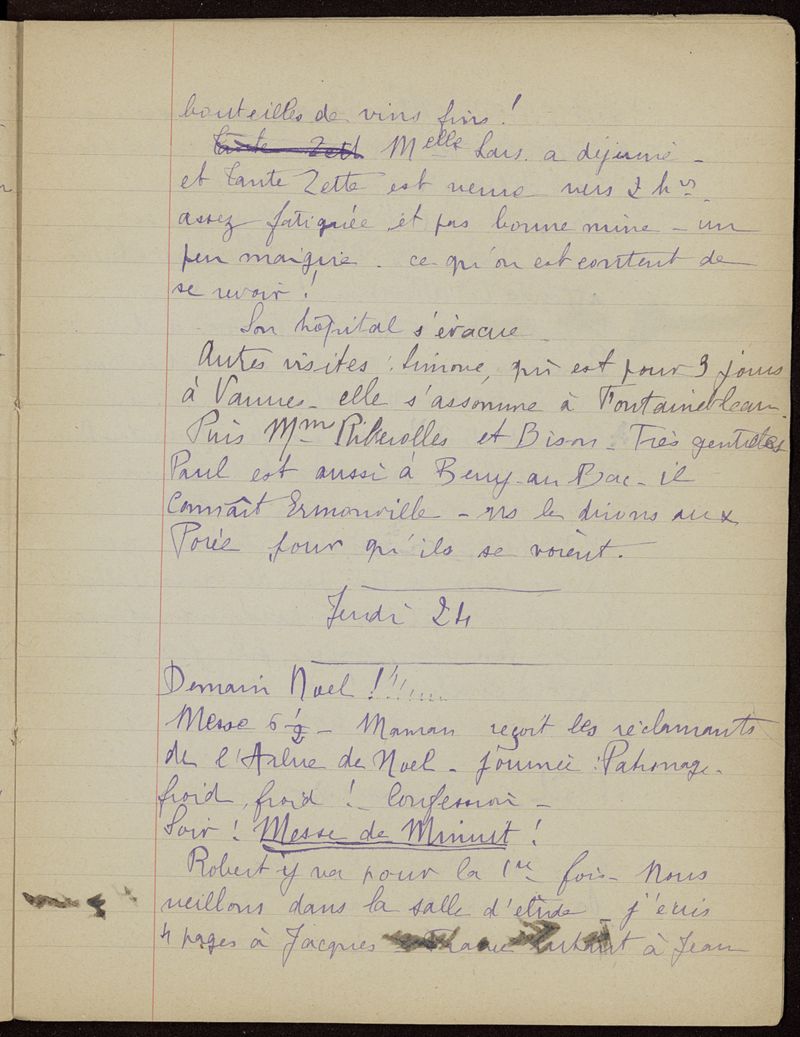 bouteilles de vins fins !
Tante Zett Melle Lars. a déjeuné -
et tante Zette est venue vers 2 hrs.
assez fatiguée et pas bonne mine - un
peu maigrie. ce qu'on est content de
se revoir !
Son hôpital s'évacue.
Autres visites : Simone, qui est pour 3 jours
à Vannes - elle s'assomme à Fontainebleau.
Puis Mme Riberolles et Bison - Très gentilles
Paul est aussi à Berry-au-Bac - il
connaît Ermonville - ns le dirons aux
Porée pour qu'ils se voient.
Jeudi 24
Demain Noel !!!!....
Messe 6 1/2 - Maman reçoit les réclamants
de l'Arbre de Noel - journée : Patronage.
froid, froid ! Confession -
Soir ! Messe de Minuit !
Robert y va pour la 1re fois - Nous
veillons dans la salle d'étude - j'écris
4 pages à Jacques à Jean